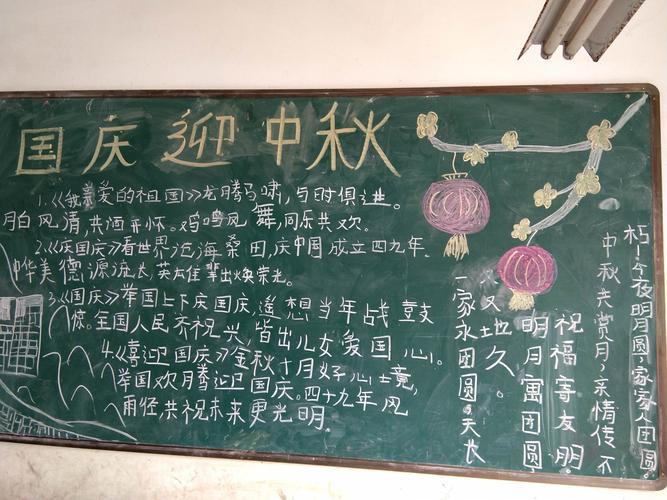 国庆迎中秋
1.《我亲爱的祖国》龙腾马啸,与时俱进。
月白风清,共洒开怀。鸡鸣风舞,同乐共欢。
2.《庆国庆》看世界沧海桑田,庆中国成立四九年.
中华美德源流长,英才辈出焕荣光。
3.《国庆》举国上下庆国庆,遥想当年战鼓
惊。全国人民齐祝兴,皆出儿女爱国心。
4.《喜迎国庆》金秋十月好心境,
举国欢腾迎国庆。四十九年风
雨径,共祝未来更光明.
朽!今夜明月圆,家家人团圆。
中秋共赏月,亲情传不
祝福寄友朋。
明月寓团圆,
地久。
一家永团圆。天长